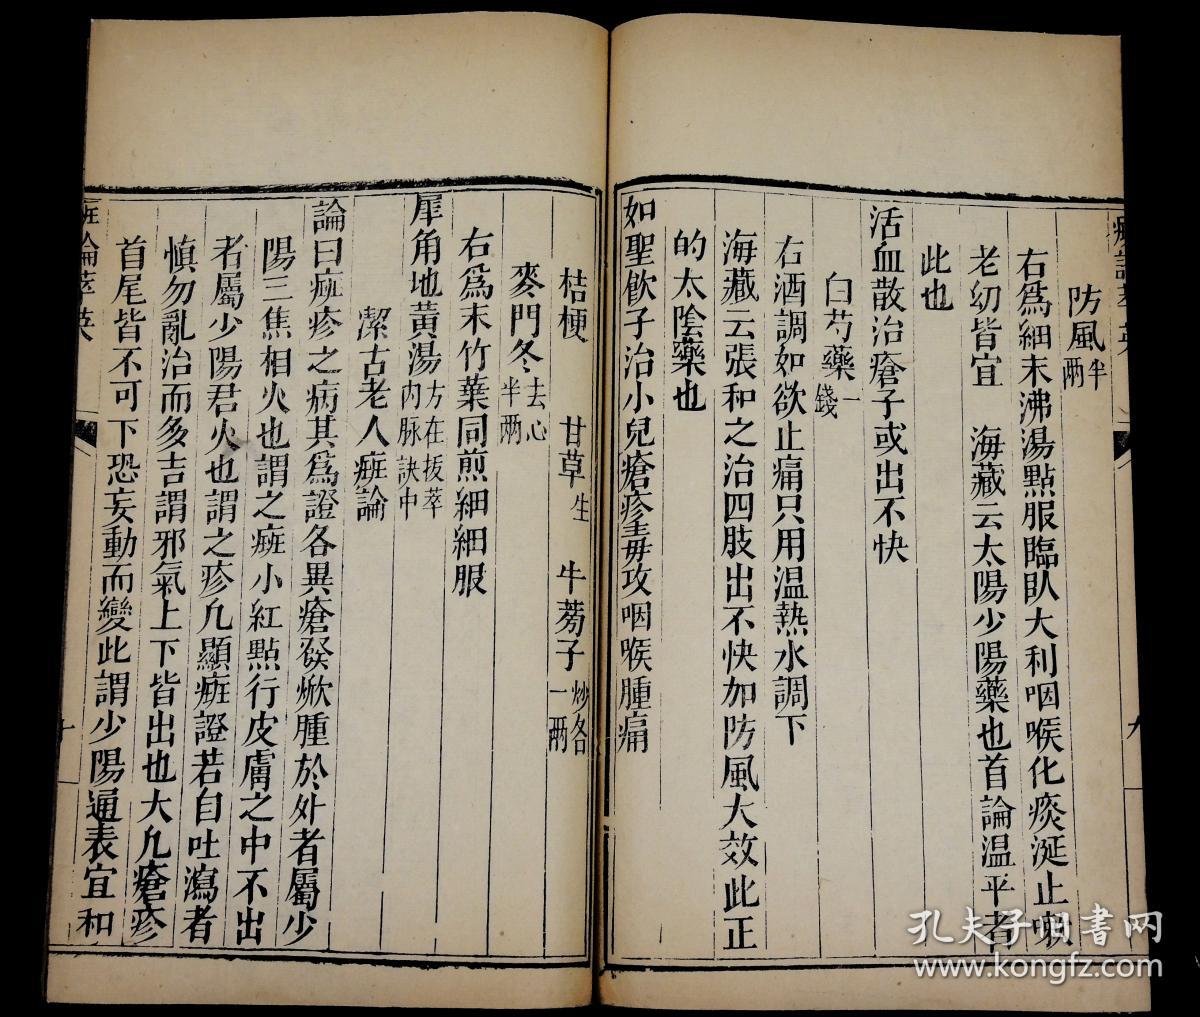 防風半兩
右爲細末沸湯點服臨臥大利咽喉化痰涎止嗽
老幼皆宜　海藏云太陽少陽藥也首論温平者
此也
活血散治瘡子或出不快
白芍藥一錢
右酒調如欲止痛只用温熱水調下
海藏云張和之治四肢出不快加防風大效此正
的太陰藥也
如聖飲子治小兒瘡疹毒攻咽喉腫痛
九
桔梗　甘草生　牛蒡子炒各一兩
麥門冬去心半兩
右爲末竹葉同煎細細服
犀角地黃湯方在拔萃内脉訣中
潔古老人癍論
論曰癍疹之病其爲證各異瘡發焮腫於外者屬少
陽三焦相火也謂之癍小紅點行皮膚之中不出
者屬少陽君火也謂之疹凡顯癍證若自吐瀉者
慎勿亂治而多吉謂邪氣上下皆出也大凡瘡疹
首尾皆不可下恐妄動而變此謂少陽通表宜和
癍論萃英
十
孔夫子旧书网
www.kongfz.com